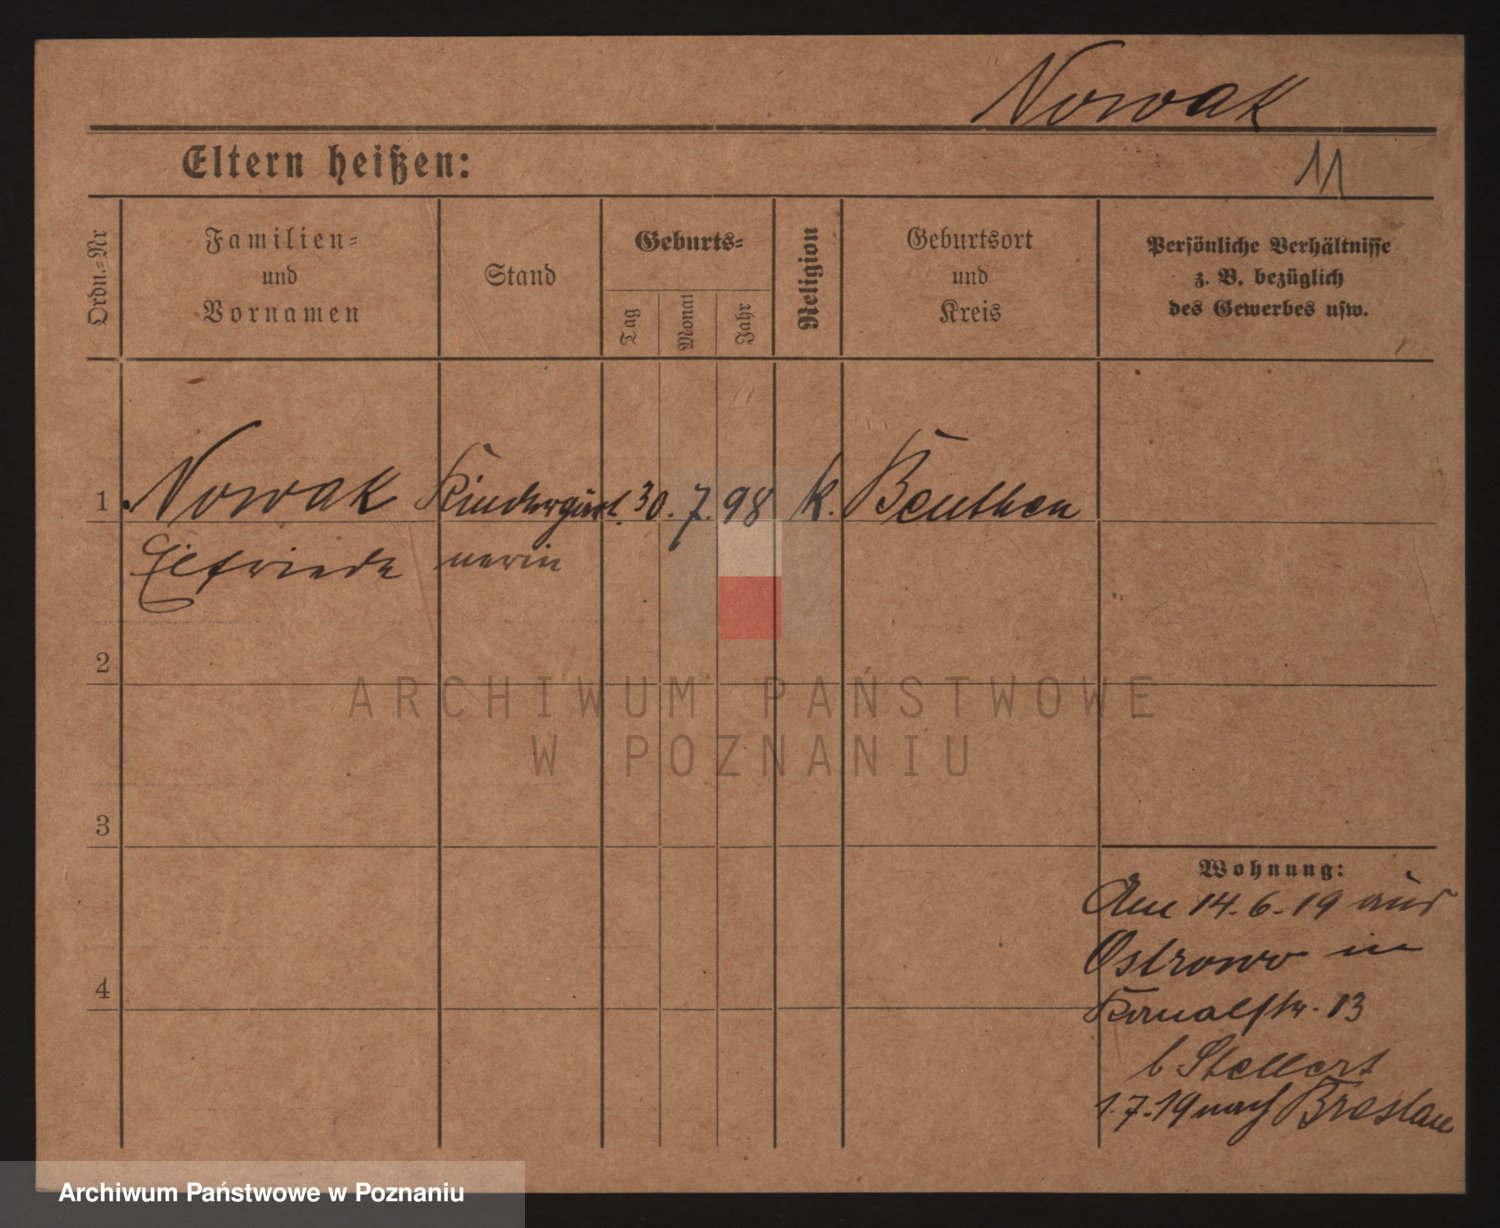 Nowak
Eltern heißen:
11
Ordn.=Nr
Familien=
und
Vornamen
Stand
Geburts=
Tag
Monat
Jahr
Religion
Geburtsort
und
Kreis
Persönliche Verhältnisse
z. B. bezüglich
des Gewerbes usw.
1 Nowak Kindergärt. 30. 7. 98 k. Beuthen
Elfriede nerin
2
3
4
Wohnung:
Am 14. 6. 19 aus
Ostrowo in
Kanalstr. 13
b Stellert
1. 7. 19 nach Breslau
ARCHIWUM PAŃSTWOWE
W POZNANIU
Archiwum Państwowe w Poznaniu